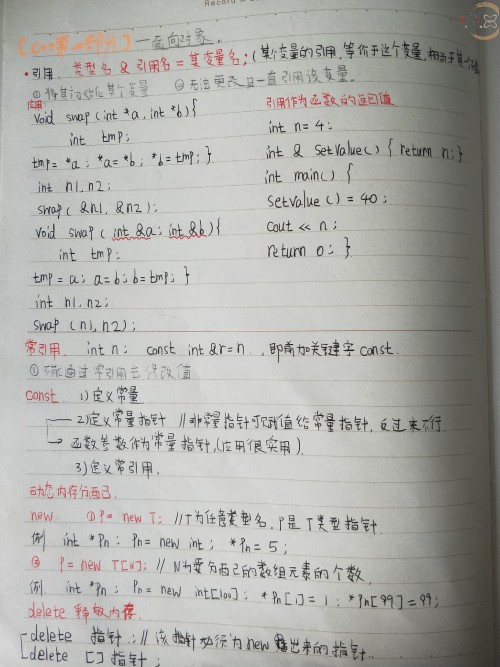 Record A
【C++第二部分】—面向对象.
·引用. 类型名 & 引用名 = 某变量名;(某个变量的引用,等价于这个变量,相当于
①将其初始化某个变量 ②无法更改且一直引用该变量.
应用:
void swap (int *a, int *b) {
int tmp;
tmp = *a; *a = *b; *b = tmp; }
int n1, n2;
swap ( &n1, &n2);
void swap ( int &a; int &b) {
int tmp;
tmp = a; a = b; b = tmp; }
int n1, n2;
swap (n1, n2);
引用作为函数的返回值
int n = 4;
int & SetValue() { return n; }
int main() {
setvalue () = 40;
cout << n;
return 0; }
常引用. int n; const int &r = n ., 即前加关键字 const.
①不能通过常引用去修改值
const. 1)定义常量
2)定义常量指针 //非常量指针可赋值给常量指针, 反过来不行.
函数参数作为常量指针,(应用很实用).
3)定义常引用.
动态内存分配.
new. ①P = new T; //T为任意类型名, P是T类型指针.
例 int *Pn; Pn = new int; *Pn = 5;
② P = new T[N]; // N为要分配的数组元素的个数.
例. int *Pn; Pn = new int[100]; *Pn[1] = 1; *Pn[99] = 99;
delete 释放内存.
delete 指针; // 该指针必须为new出来的指针.
delete [] 指针;